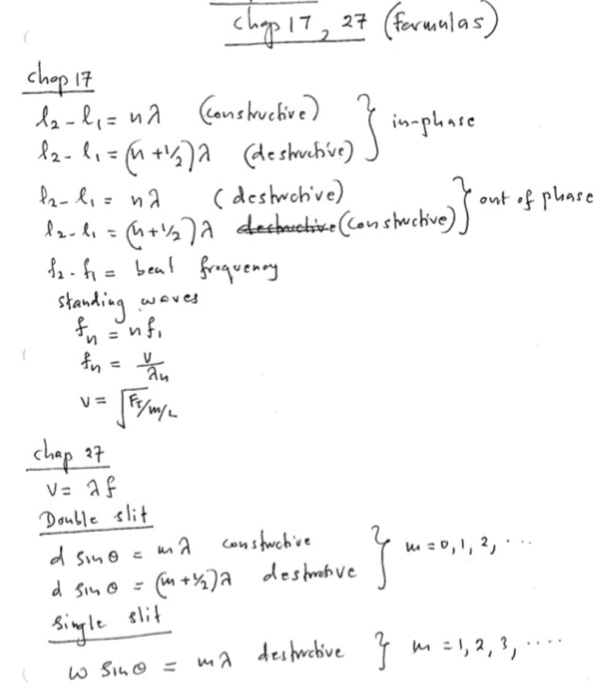 chap 17, 27 (formulas)
chap 17
l₂ - l₁ = nλ (constructive)
l₂ - l₁ = (n + 1/2)λ (destructive) } in-phase
l₂ - l₁ = nλ (destructive)
l₂ - l₁ = (n + 1/2)λ destructive (constructive) } out of phase
f₂ - f₁ = beat frequency
standing waves
fₙ = nf₁
fₙ = v/λₙ
v = √(F_T/m/L)
chap 27
v = λf
Double slit
d sin θ = mλ constructive
d sin θ = (m + 1/2)λ destructive } m = 0, 1, 2, ...
single slit
w sin θ = mλ destructive } m = 1, 2, 3, ....